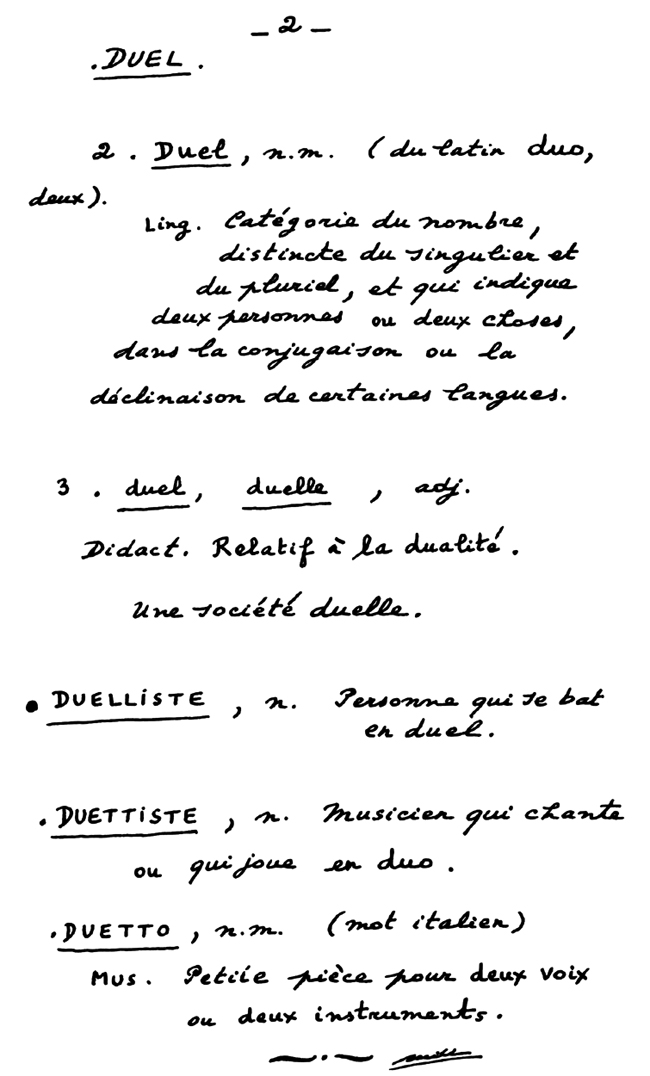 _ 2 _
. DUEL .
2 . Duel , n.m. ( du latin duo,
deux ).
Ling. Catégorie du nombre,
distincte du singulier et
du pluriel, et qui indique
deux personnes ou deux choses,
dans la conjugaison ou la
déclinaison de certaines langues.
3 . duel, duelle , adj.
Didact. Relatif à la dualité .
Une société duelle .
• DUELLiSTE , n. Personne qui se bat
en duel .
. DUETTiSTE , n. Musicien qui chante
ou qui joue en duo .
. DUETTO , n.m. (mot italien)
Mus . Petite pièce pour deux voix
ou deux instruments .